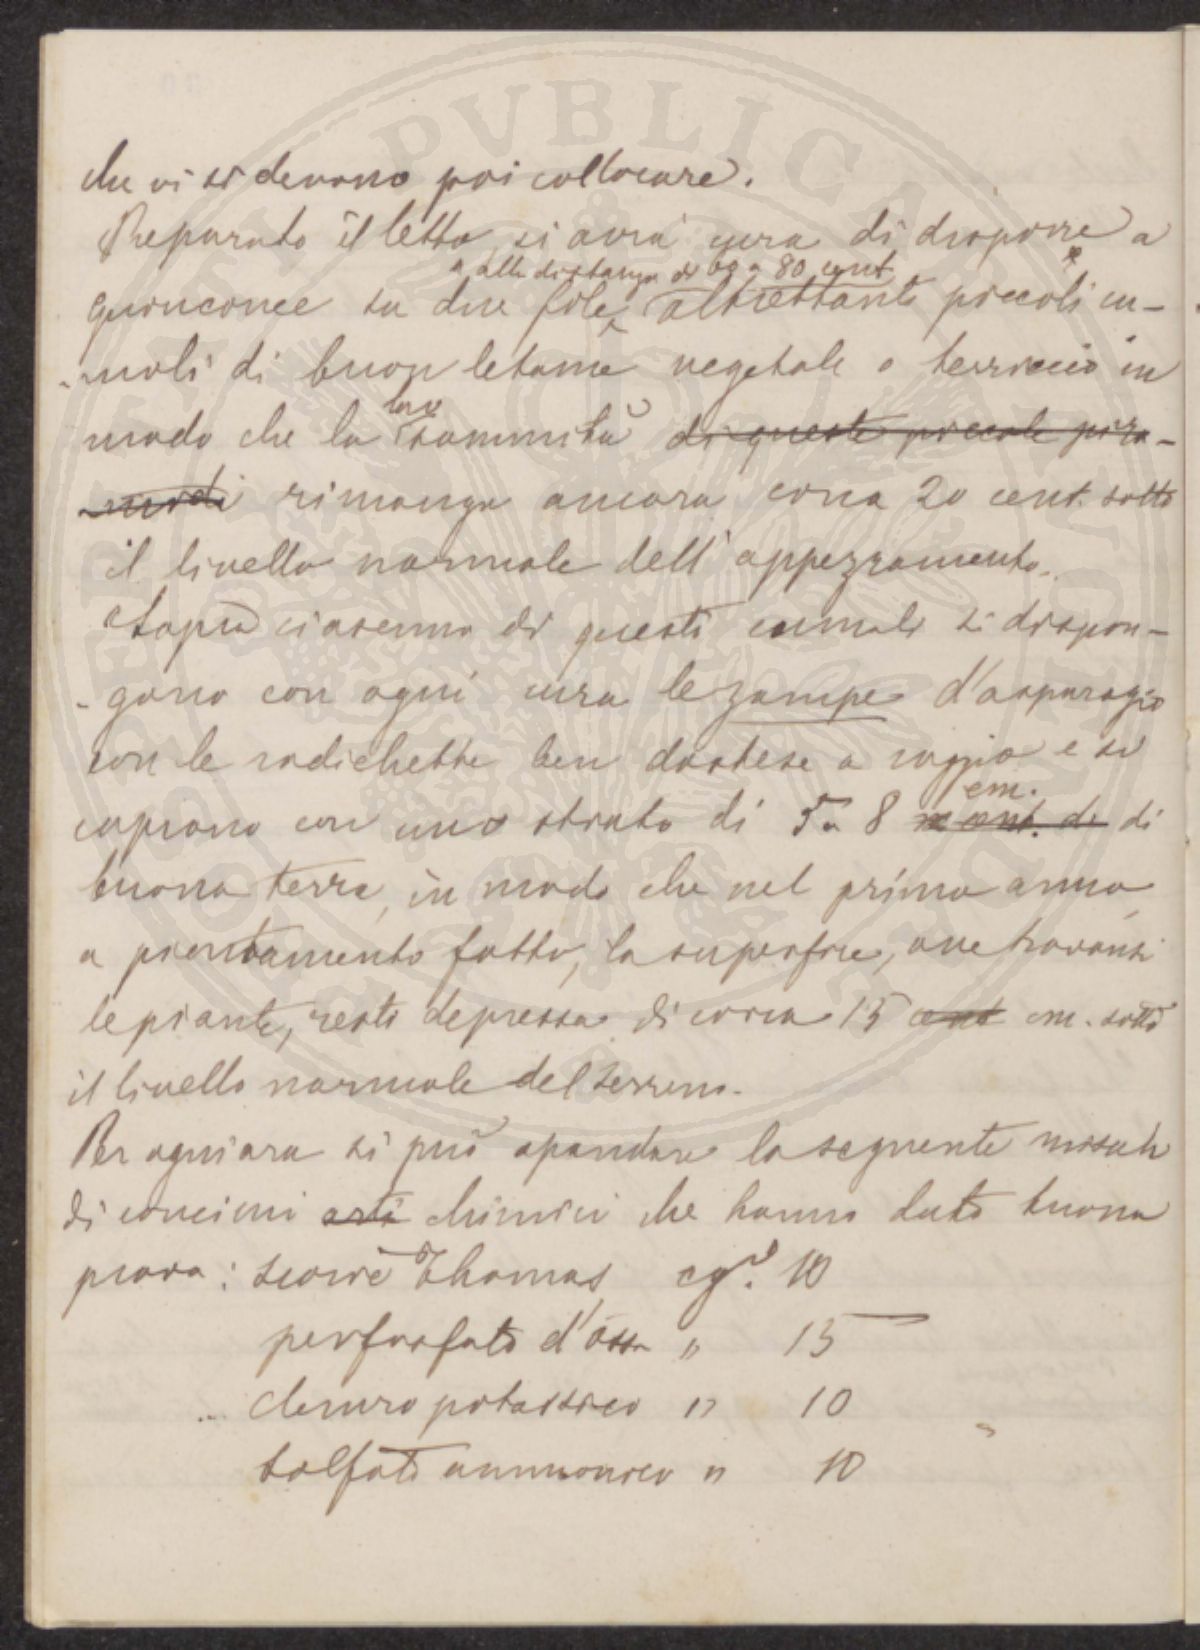 che vi si devono poi collocare.
Preparato il letto, si avrà cura di disporre a
alla distanza di 60 a 80 cent.
quinconce su due file altrettanti piccoli cu-
-muli di buon letame vegetale o terriccio in
loro
modo che la sommità di queste piccole pira-
-midi rimanga ancora circa 20 cent. sotto
il livello normale dell'appezzamento.
Sopra ciascuno di questi cumuli si dispon-
-gono con ogni cura le zampe d'asparagio
con le radichette ben distese a raggio e si
cm.
coprono con uno strato di 5 a 8 cent. di di
buona terra, in modo che nel primo anno,
a piantamento fatto, la superficie, ove trovansi
le piante, resti depressa di circa 15 cent cm. sotto
il livello normale del terreno.
Per ogni ara si può spandere la seguente miscela
di concimi arti chimici che hanno dato buona
prova: scorie Thomas cg. 10
perfosfato d'ossa " 15
cloruro potassico " 10
solfato ammonico " 10
PVBLICA